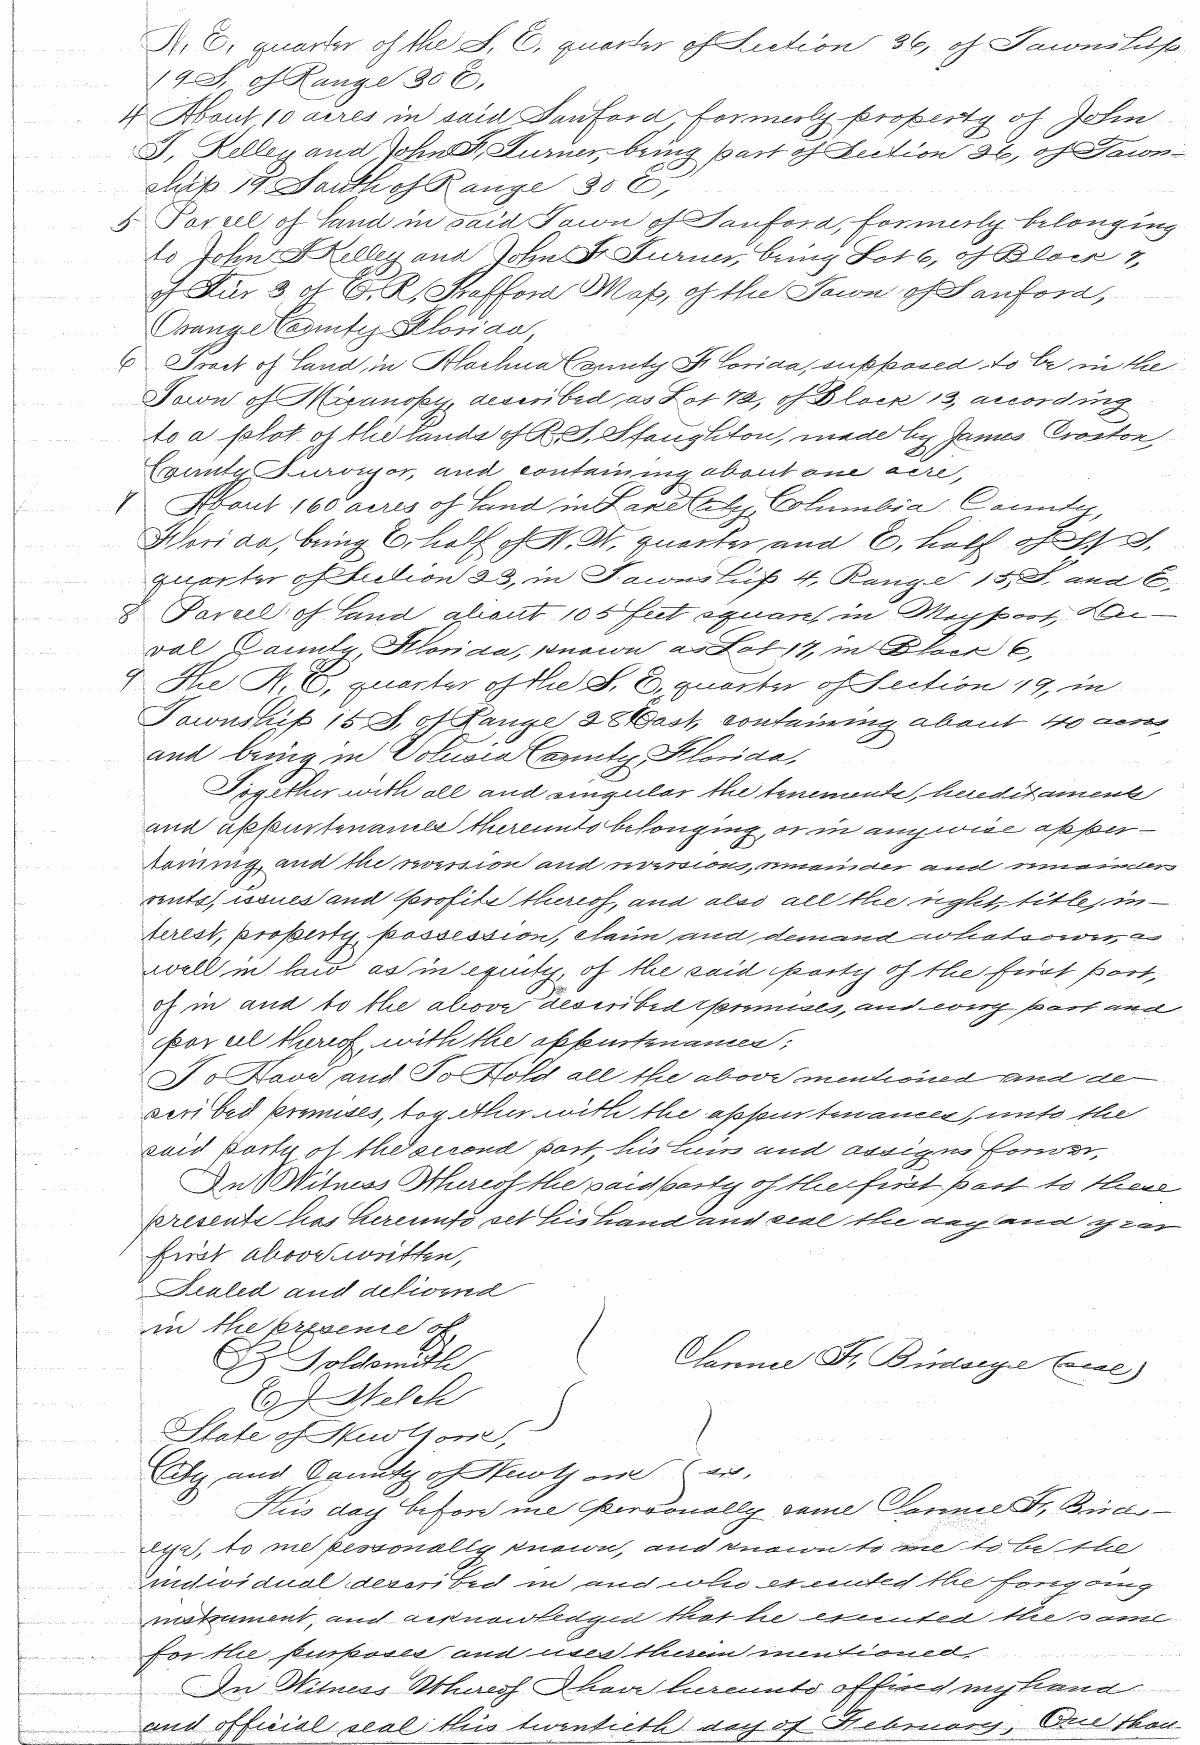 N. E. quarter of the S. E. quarter of Section 36, of Township
19 S. of Range 30 E.
4 About 10 acres in said Sanford, formerly property of John
T. Kelley and John F. Turner, being part of Section 36, of Town-
ship 19 South of Range 30 E,
5 Parcel of land in said Town of Sanford, formerly belonging
to John Kelley and John F. Turner, being Lot 6, of Block 7,
of Tier 3 of E. R. Trafford Map, of the Town of Sanford,
Orange County Florida,
6 Tract of land, in Alachua County Florida, supposed to be in the
Town of Micanopy, described, as Lot 72, of Block 13, acording
to a plot of the lands of R. S. Stoughton, made by James Croxton,
County Surveyor, and containing about one acre,
7 About 160 acres of land in Lake City, Columbia County,
Florida, being E. half of N. W. quarter and E. half of S.
quarter of Section 33, in Township 4, Range 15, S. and E.
8 Parcel of land about 105 feet square, in Mayport, Du-
val County, Florida, known as Lot 17, in Block 6,
9 The N. E. quarter of the S. E. quarter of Section 19, in
Township 15 S. of Range 28 East, containing about 40 acres,
and being in Volusia County, Florida.
Together with all and singular the tenements, hereditaments
and appurtenances thereunto belonging, or in anywise apper-
taining, and the reversion and reversions, remainder and remainders
rents, issues and profits thereof, and also all the right, title, in-
terest, property, possession, claim and demand whatsoever, as
well in law as in equity, of the said party of the first part,
of in and to the above described premises, and every part and
parcel thereof, with the appurtenances;
To Have and To Hold all the above mentioned and de-
scribed premises, together with the appurtenances, unto the
said party of the second part, his heirs and assigns forever,
In Witness Whereof the said party of the first part to these
presents has hereunto set his hand and seal the day and year
first above written,
Sealed and delivered
in the presence of,
Goldsmith
Clarence F. Birdseye (seal)
E J Welch
State of New York,
City and County of New York ss.
This day before me personally came Clarence F. Birds-
eye, to me personally known, and known to me to be the
individual described in and who executed the foregoing
instrument, and acknowledged that he executed the same
for the purposes and uses therein mentioned.
In Witness Whereof I have hereunto affixed my hand
and official seal this twentieth day of February, One thou-